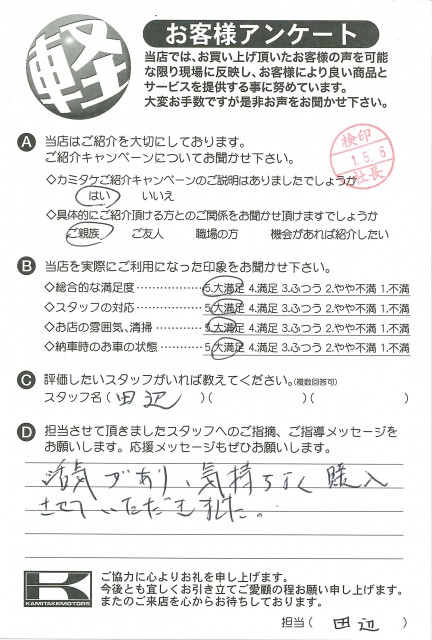 軽
お客様アンケート
当店では、お買い上げ頂いたお客様の声を可能
な限り現場に反映し、お客様により良い商品と
サービスを提供する事に努めています。
大変お手数ですが是非お声をお聞かせ下さい。
A 当店はご紹介を大切にしております。
ご紹介キャンペーンについてお聞かせ下さい。
検印
1.5.6
社長
◇カミタケご紹介キャンペーンのご説明はありましたでしょうか
はい いいえ
◇具体的にご紹介頂ける方とのご関係をお聞かせ頂けますでしょうか
ご親族 ご友人 職場の方 機会があれば紹介したい
B 当店を実際にご利用になった印象をお聞かせ下さい。
◇総合的な満足度 5.大満足 4.満足 3.ふつう 2.やや不満 1.不満
◇スタッフの対応 5.大満足 4.満足 3.ふつう 2.やや不満 1.不満
◇お店の雰囲気、清掃 5.大満足 4.満足 3.ふつう 2.やや不満 1.不満
◇納車時のお車の状態 5.大満足 4.満足 3.ふつう 2.やや不満 1.不満
C 評価したいスタッフがいれば教えてください。(複数回答可)
スタッフ名 ( 田辺 )( )( )
D 担当させて頂きましたスタッフへのご指摘、ご指導メッセージを
お願いします。応援メッセージもぜひお願いします。
活気があり、気持ちよく購入
させていただきました。
K
KAMITAKEMOTORS
ご協力に心よりお礼を申し上げます。
今後とも宜しくお引き立てご愛顧の程お願い申し上げます。
またのご来店を心からお待ちしております。
担当 ( 田辺 )